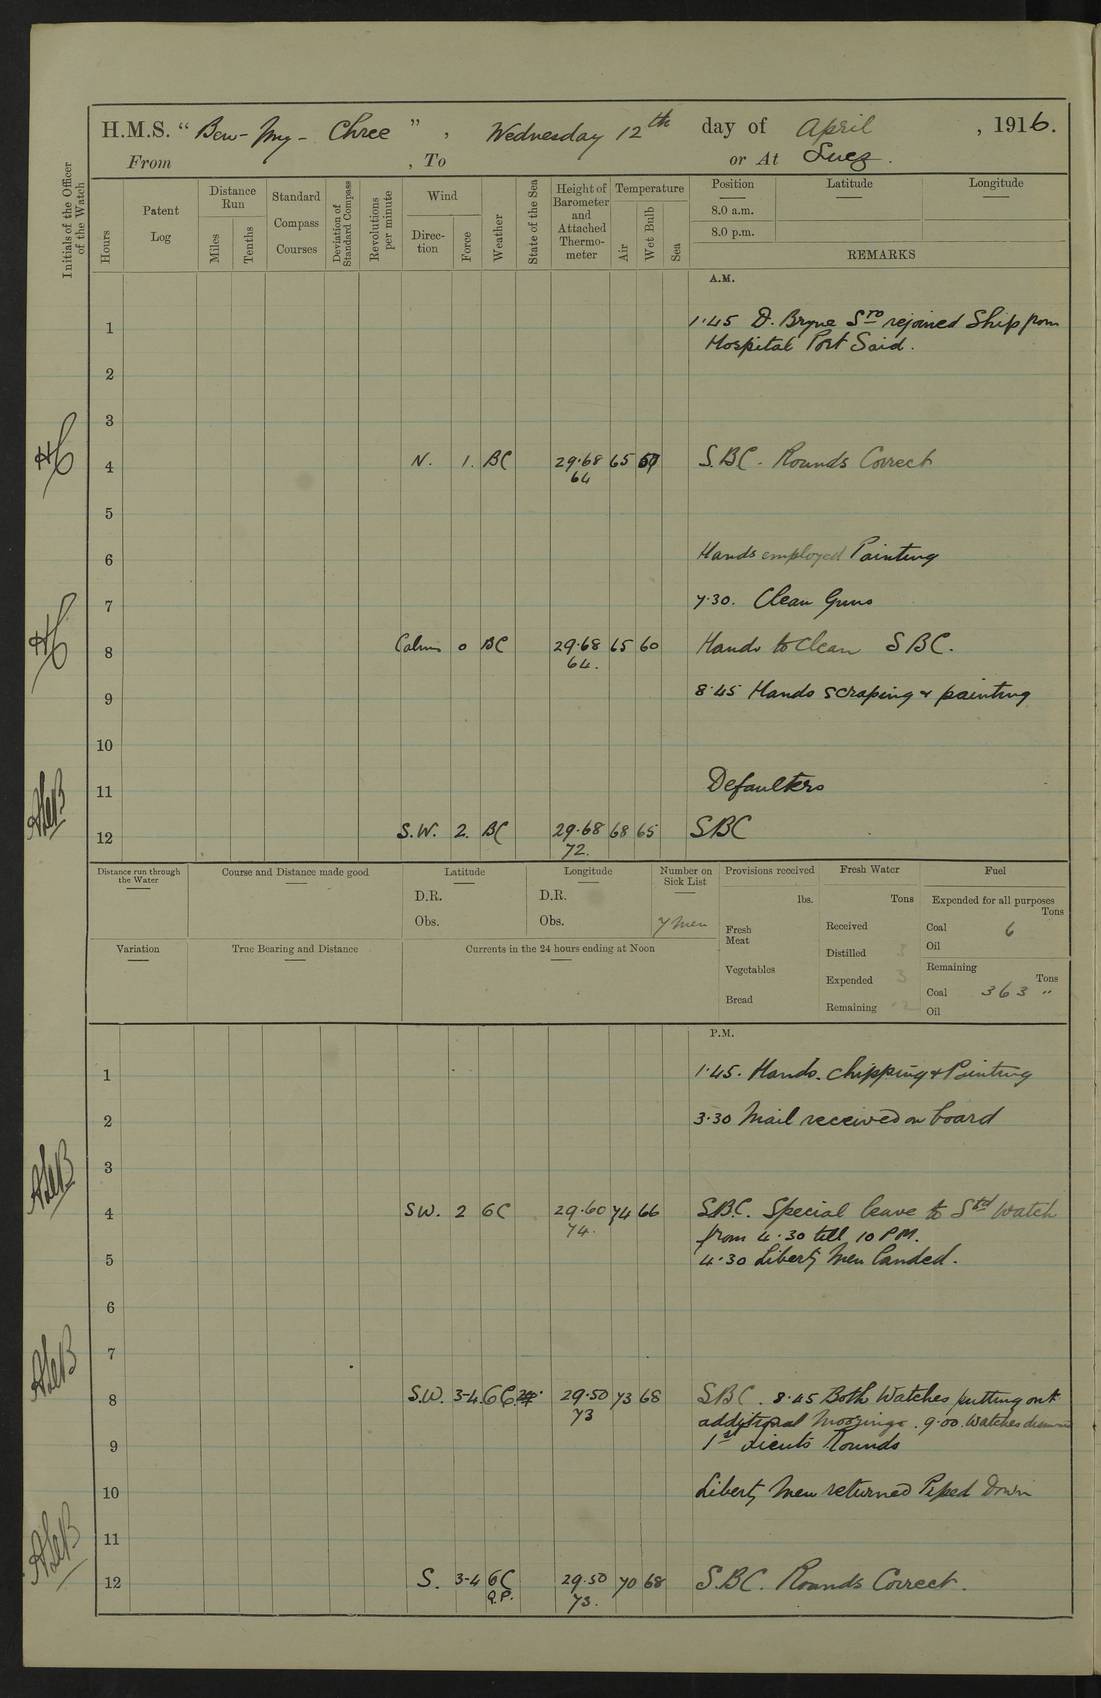 H.M.S. " Ben-My-Chree " , Wednesday 12th day of April , 1916.
From , To or At Suez.
Initials of the Officer of the Watch
Hours
Patent Log
Distance Run
Miles
Tenths
Standard Compass Courses
Deviation of Standard Compass
Revolutions per minute
Wind
Direction
Force
Weather
State of the Sea
Height of Barometer and Attached Thermometer
Temperature
Air
Wet Bulb
Sea
Position Latitude Longitude
8.0 a.m.
8.0 p.m.
REMARKS
A.M.
1 1·45 D. Bryne Sto rejoined Ship from
Hospital Port Said.
2
3
4 N. 1. BC 29·68 65 S.BC. Rounds Correct
64
5
6 Hands employed Painting
7 7·30. Clean Guns
8 Calm 0 BC 29·68 65 60 Hands to Clean SBC.
64.
9 8·45 Hands scraping & painting
10
11 Defaulters
12 S.W. 2. BC 29·68 68 65 SBC
72.
Distance run through the Water
Course and Distance made good
Latitude
D.R.
Obs.
Longitude
D.R.
Obs.
Number on Sick List
7 men
Provisions received
lbs.
Fresh Meat
Vegetables
Bread
Fresh Water
Tons
Received
Distilled 3
Expended 3
Remaining
Fuel
Expended for all purposes
Tons
Coal 6
Oil
Remaining
Tons
Coal 363 "
Oil
Variation
True Bearing and Distance
Currents in the 24 hours ending at Noon
P.M.
1 1·45. Hands. chipping & Painting
2 3·30 Mail received on board
3
4 SW. 2 BC 29·60 74 66 S.B.C. Special leave to Stbd Watch
74. from 4·30 till 10 PM.
5 4·30 Liberty Men landed.
6
7
8 S.W. 3-4. BC 29·50 73 68 SBC. 8·45 Both Watches putting out
73 additional Moorings. 9·00. Watches
9 1st Lieuts Rounds
10 Liberty Men returned Piped Down
11
12 S. 3-4 BC 29·50 70 68 S.B.C. Rounds Correct.
Q.P. 73.